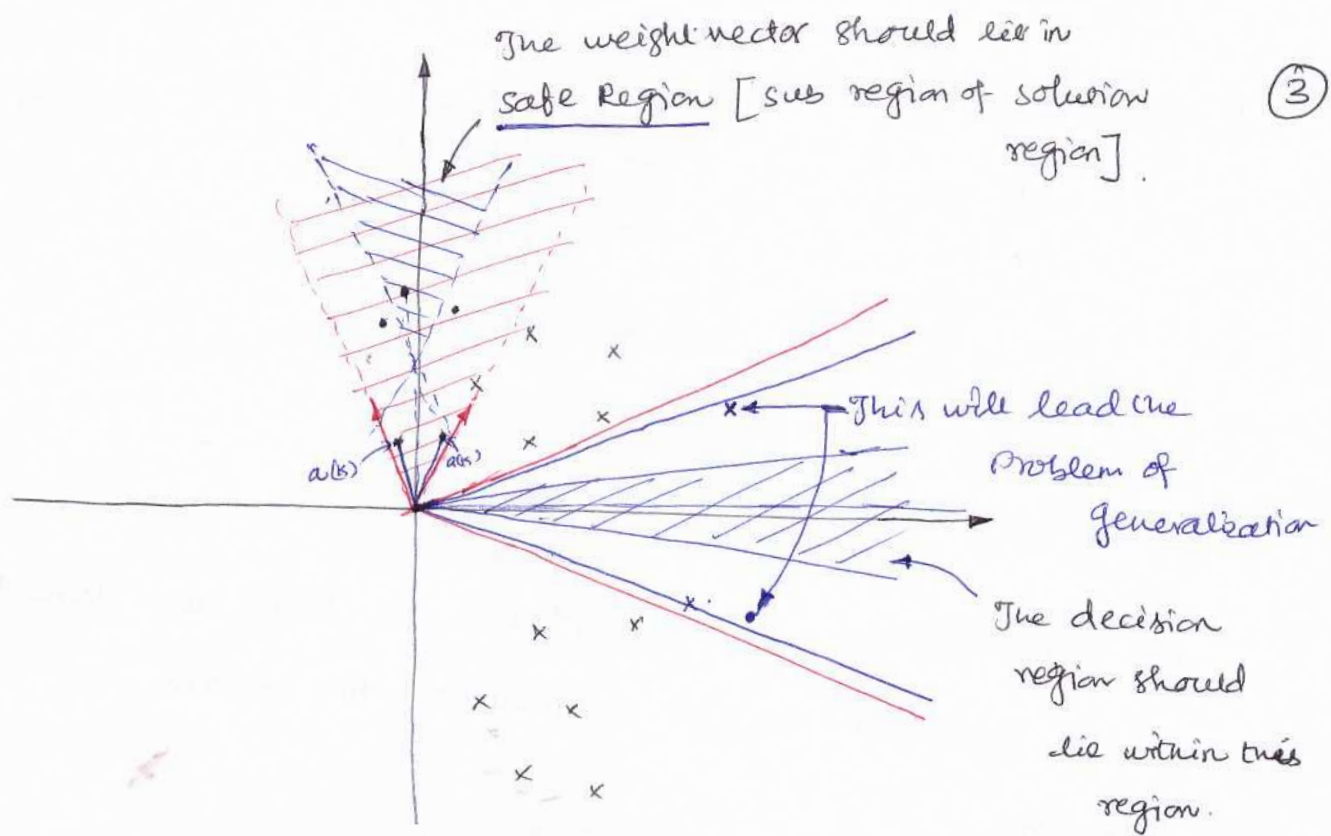 The weight vector should lie in
safe Region [sub region of solution
region].
3
a(k)
a(k)
This will lead the
Problem of
generalization
The decision
region should
lie within this
region.